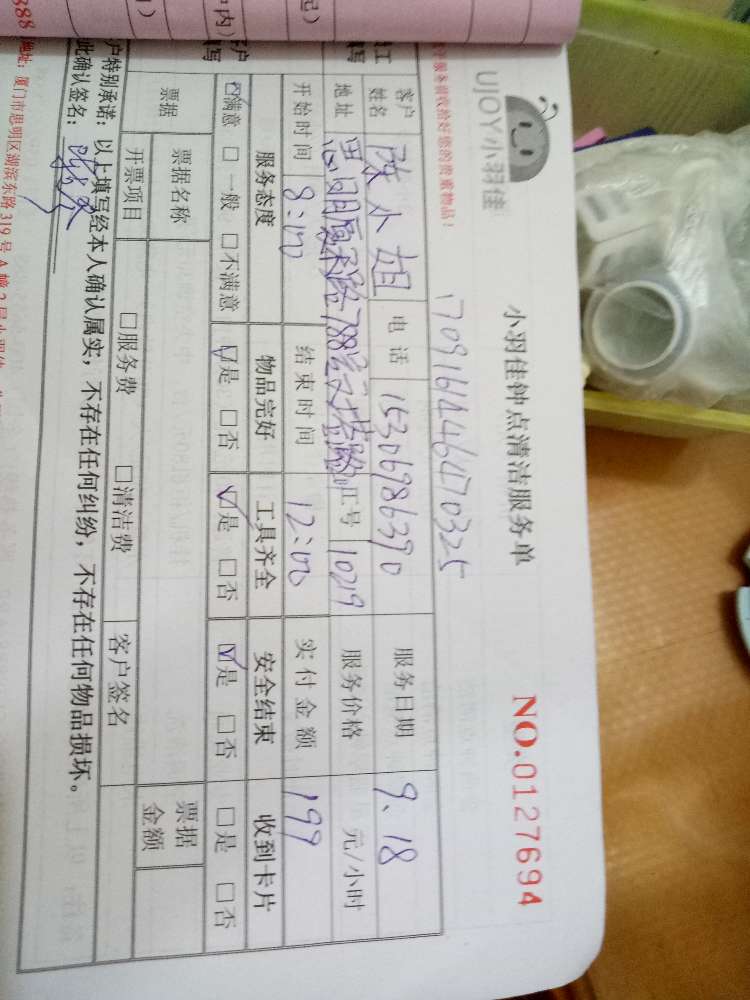 UJOY小羽佳
小羽佳钟点清洁服务单
NO.0127694
好您的贵重物品!
1709161446470325
客户姓名 陈小姐 电话 15306986390 服务日期 9.18
地址 思明区 788号 工号 10219 服务价格 元/小时
开始时间 8:00 结束时间 12:00 实付金额 199
服务态度 物品完好 工具齐全 安全结束 收到卡片
☑满意 □一般 □不满意 ☑是 □否 ☑是 □否 ☑是 □否 □是 □否
票据 票据名称 票据金额
开票项目 □服务费 □清洁费 客户签名
户特别承诺:以上填写经本人确认属实,不存在任何纠纷,不存在任何物品损坏。
此确认签名:
888 地址:厦门市思明区湖滨东路319号A幢2层小羽佳